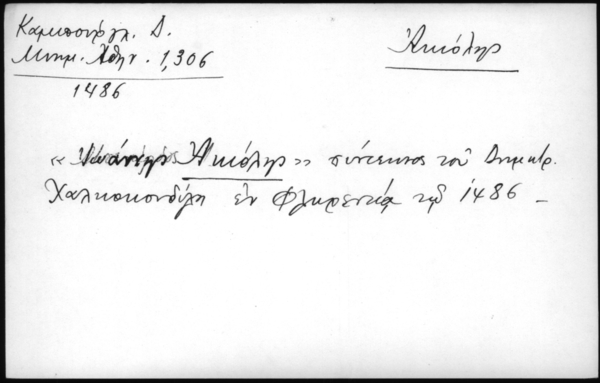 Καμπούρογλ. Δ.
Μνημ. Αθην. 1,306
1486
Ἀκόλης
« Ἰωάννης Ἀκόλης » σύντεκνος τοῦ Δημητρ.
Χαλκοκονδύλη ἐν Φλωρεντίᾳ τῷ 1486 –